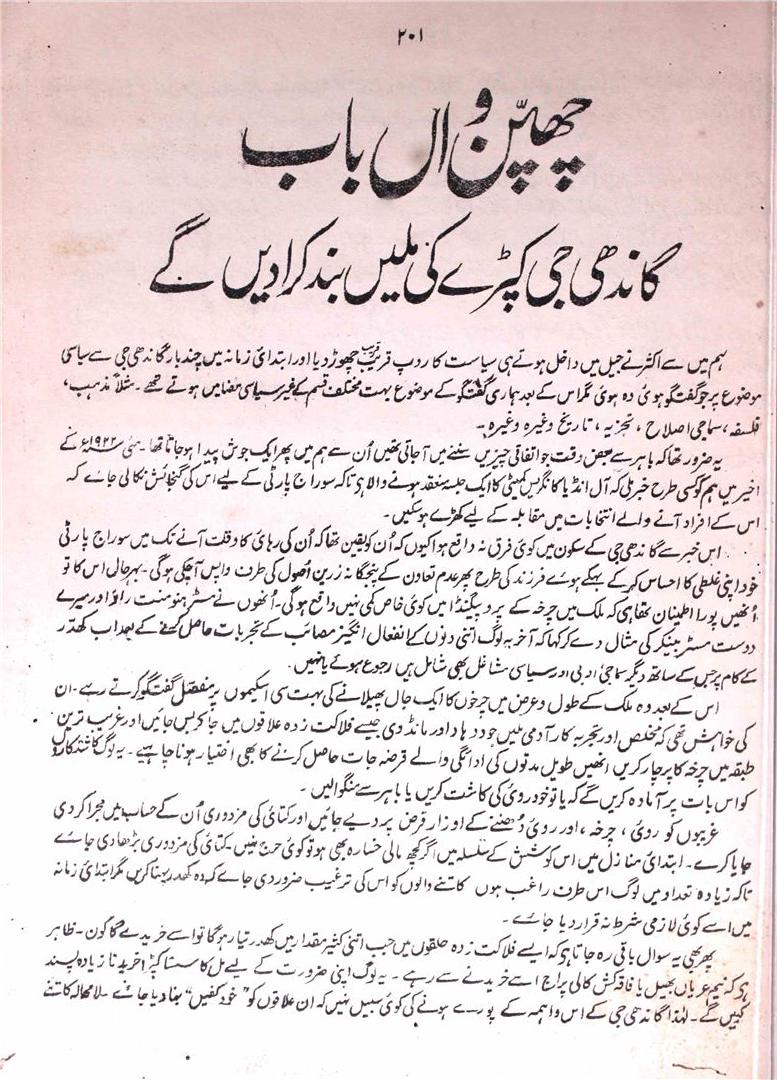 ۲۰۱
چھپّن واں باب
گاندھی جی کپڑے کی ملیں بند کرادیں گے
ہم میں سے اکثر نے جیل میں داخل ہوتے ہی سیاست کا روپ قریب قریب چھوڑ دیا اور ابتدائی زمانہ میں چند بار گاندھی جی سے سیاسی
موضوع پر جو گفتگو ہوئی وہ ہوئی مگر اس کے بعد ہماری گفتگو کے موضوع بہت مختلف قسم کے غیر سیاسی مضامین ہوتے تھے۔ مثلاً مذہب،
فلسفہ، سماجی اصلاح، تجزیہ، تاریخ وغیرہ وغیرہ۔
یہ ضرور تھا کہ باہر سے بعض وقت جو اتفاقی چیزیں سننے میں آجاتی تھیں اُن سے ہم میں پھر ایک جوش پیدا ہوجاتا تھا۔ مئی سنہ ۱۹۲۲ء کے
اخیر میں ہم کو کسی طرح خبر ملی کہ آل انڈیا کانگریس کمیٹی کا ایک جلسہ منعقد ہونے والا ہے تاکہ سوراج پارٹی کے لیے اس کی گنجائش نکالی جائے کہ
اس کے افراد آنے والے انتخابات میں مقابلہ کے لیے کھڑے ہوسکیں۔
اس خبر سے گاندھی جی کے سکون میں کوئی فرق نہ واقع ہوا کیوں کہ اُن کو یقین تھا کہ اُن کی رہائی کا وقت آنے تک میں سوراج پارٹی
خود اپنی غلطی کا احساس کرکے بہکے ہوئے فرزند کی طرح پھر عدم تعاون کے پنجگانہ زرین اُصول کی طرف واپس آچکی ہوگی۔ بہرحال اس کا تو
اُنھیں پورا اطینان تھا ہی کہ ملک میں چرخہ کے پروپیگنڈا میں کوئی خاص کمی نہیں واقع ہوگی۔ اُنھوں نے مسٹر ہنومنت راؤ اور میرے
دوست مسٹر بینکر کی مثال دے کر کہا کہ آخر یہ لوگ اتنی دنوں کے انفعال انگیز مصائب کے تجربات حاصل کرنے کے بعد اب کھدّر
کے کام پر جس کے ساتھ دیگر سماجی ادبی اور سیاسی مشاغل بھی شامل ہیں رجوع ہوئے یا نہیں۔
اس کے بعد وہ ملک کے طول و عرض میں چرخوں کا ایک جال پھیلانے کی بہت سی اسکیموں پر مفصّل گفتگو کرتے رہے۔ ان
کی خواہش تھی کہ مخلص اور تجربہ کار آدمی ملیں جو دوہاد اور مانڈوی جیسے فلاکت زدہ علاقوں میں جاکر بس جائیں اور غریب ترین
طبقہ میں چرخہ کا پرچار کریں انھیں طویل مدتوں کی ادائگی والے قرضہ جات حاصل کرنے کا بھی اختیار ہونا چاہیے۔ یہ لوگ کاشتکاروں
کو اس بات پر آمادہ کریں گے کہ یا تو خود روئی کی کاشت کریں یا باہر سے منگوالیں۔
غریبوں کو روئی، چرخہ، اور روئی دُھننے کے اوزار قرض پر دیے جائیں اور کتائی کی مزدوری اُن کے حساب میں مجرا کردی
جایا کرے۔ ابتدائی منازل میں اس کوشش کے سلسلہ میں اگر کچھ مالی خسارہ بھی ہو تو کوئی حرج نہیں۔ کتائی کی مزدوری بڑھا دی جائے
تاکہ زیادہ تعداد میں لوگ اس طرف راغب ہوں کاتنے والوں کو اس کی ترغیب ضرور دی جائے کہ وہ کھدر پہنا کریں مگر ابتدائی زمانہ
میں اسے کوئی لازمی شرط نہ قرار دیا جائے۔
پھر بھی یہ سوال باقی رہ جاتا ہی کہ ایسے فلاکت زدہ حلقوں میں جب اتنی کثیر مقدار میں کھدر تیار ہوگا تو اسے خریدے گا کون۔ ظاہر
ہی کہ نیم عریاں بھیل یا فاقہ کش کالی پراج اسے خریدنے سے رہے۔ یہ لوگ اپنی ضرورت کے لیے مل کا سستا کپڑا خریدنا زیادہ پسند
کریں گے۔ لہٰذا گاندھی جی کے اس واہمہ کے پورے ہونے کی کوئی سبیل نہیں کہ ان علاقوں کو "خود کفیں" بنادیا جائے۔ لامحالہ کاتنے